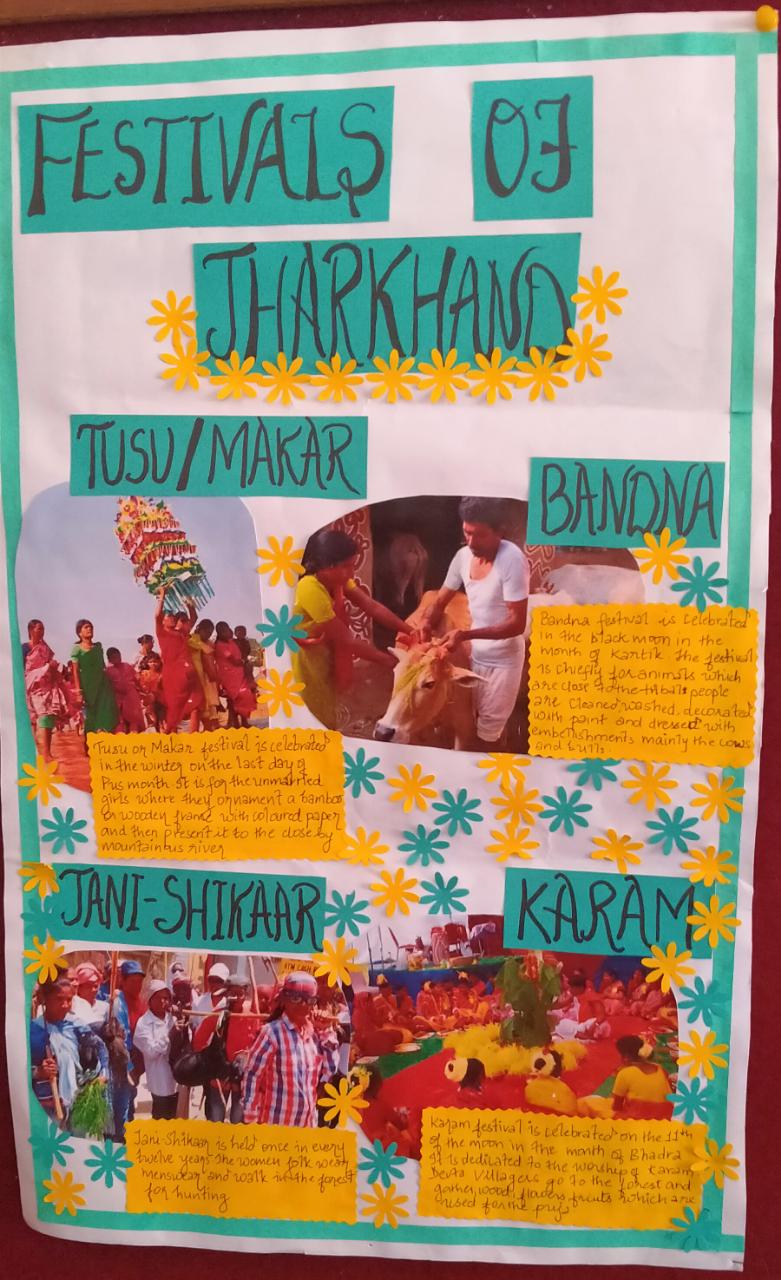 FESTIVALS OF
JHARKHAND
TUSU/MAKAR
Tusu or Makar festival is celebrated
in the winter on the last day of
Pus month. It is for the unmarried
girls where they ornament a bamboo
or wooden frame with coloured paper
and then present it to the close by
mountainous river
BANDNA
Bandna festival is celebrated
in the black moon in the
month of Kartik. The festival
is chiefly for animals which
are close to the tribals people
are cleaned, washed, decorated
with paint and dressed with
embellishments mainly the cows
and bulls.
JANI-SHIKAAR
Jani-Shikaar is held once in every
twelve years. The women folk wear
menswear and walk in the forest
for hunting
KARAM
Karam festival is celebrated on the 11th
of the moon in the month of Bhadra
It is dedicated to the worship of Karam
Devta Villagers go to the forest and
gather wood, flowers fruits which are
used for the puja